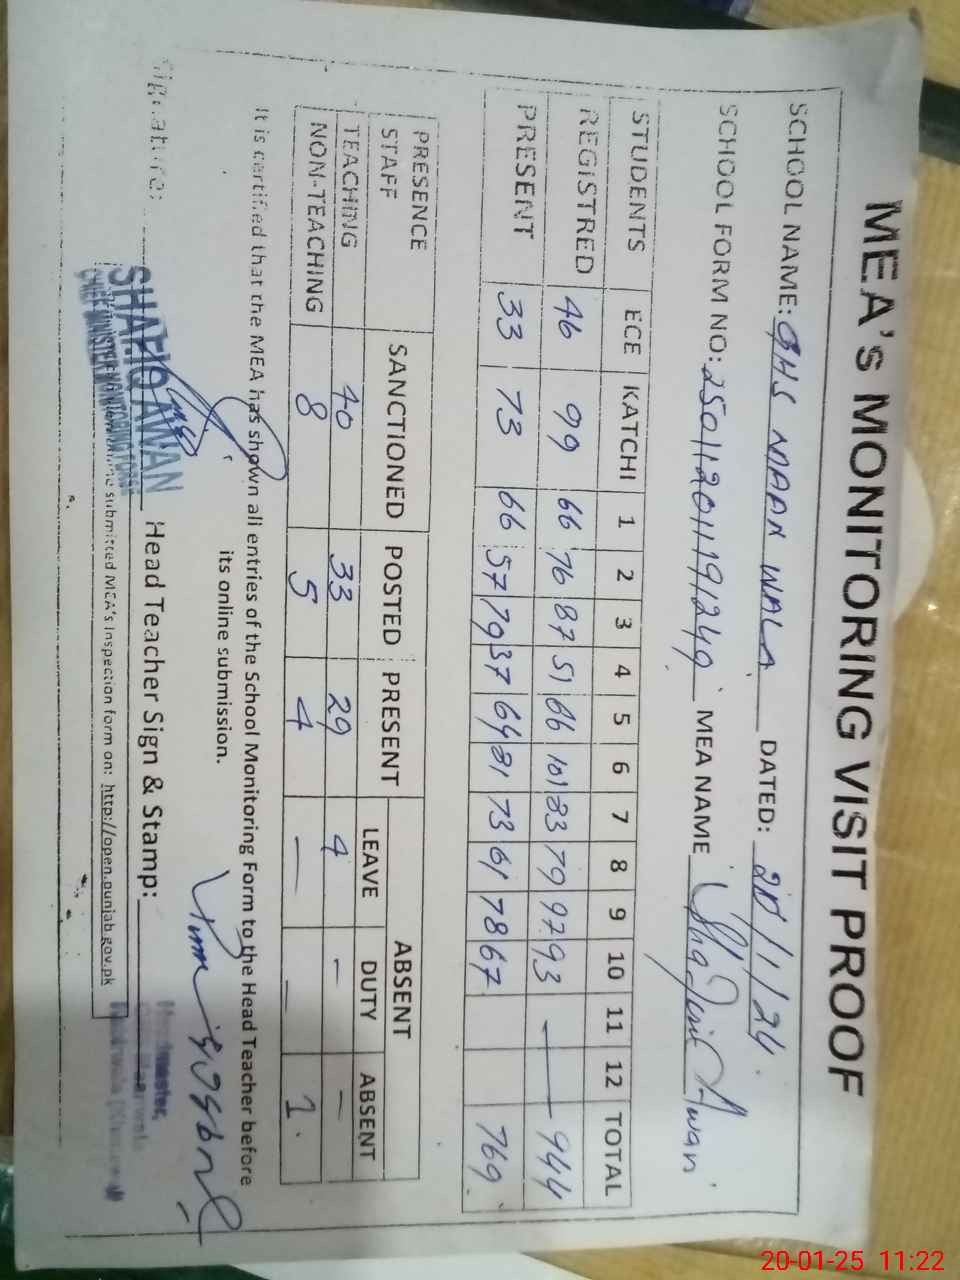 MEA's MONITORING VISIT PROOF
SCHOOL NAME: GHS MAAN WALA DATED: 20/1/24
SCHOOL FORM NO: MEA NAME Awan
STUDENTS ECE KATCHI 1 2 3 4 5 6 7 8 9 10 11 12 TOTAL
REGISTRED 46 99 66 76 87 51 66 101 83 79 97 93 — 944
PRESENT 33 73 66 57 79 37 64 81 73 61 78 67 769
PRESENCE ABSENT
STAFF SANCTIONED POSTED PRESENT LEAVE DUTY ABSENT
TEACHING 40 33 29 4 – –
NON-TEACHING 8 5 4 – – 1
It is certified that the MEA has shown all entries of the School Monitoring Form to the Head Teacher before
its online submission.
Signature: Head Teacher Sign & Stamp:
SHAFIQ AWAN
CHIEF MINISTER MONITORING FORCE
submitted MEA's Inspection form on: http://open.punjab.gov.pk
Headmaster,
20-01-25 11:22